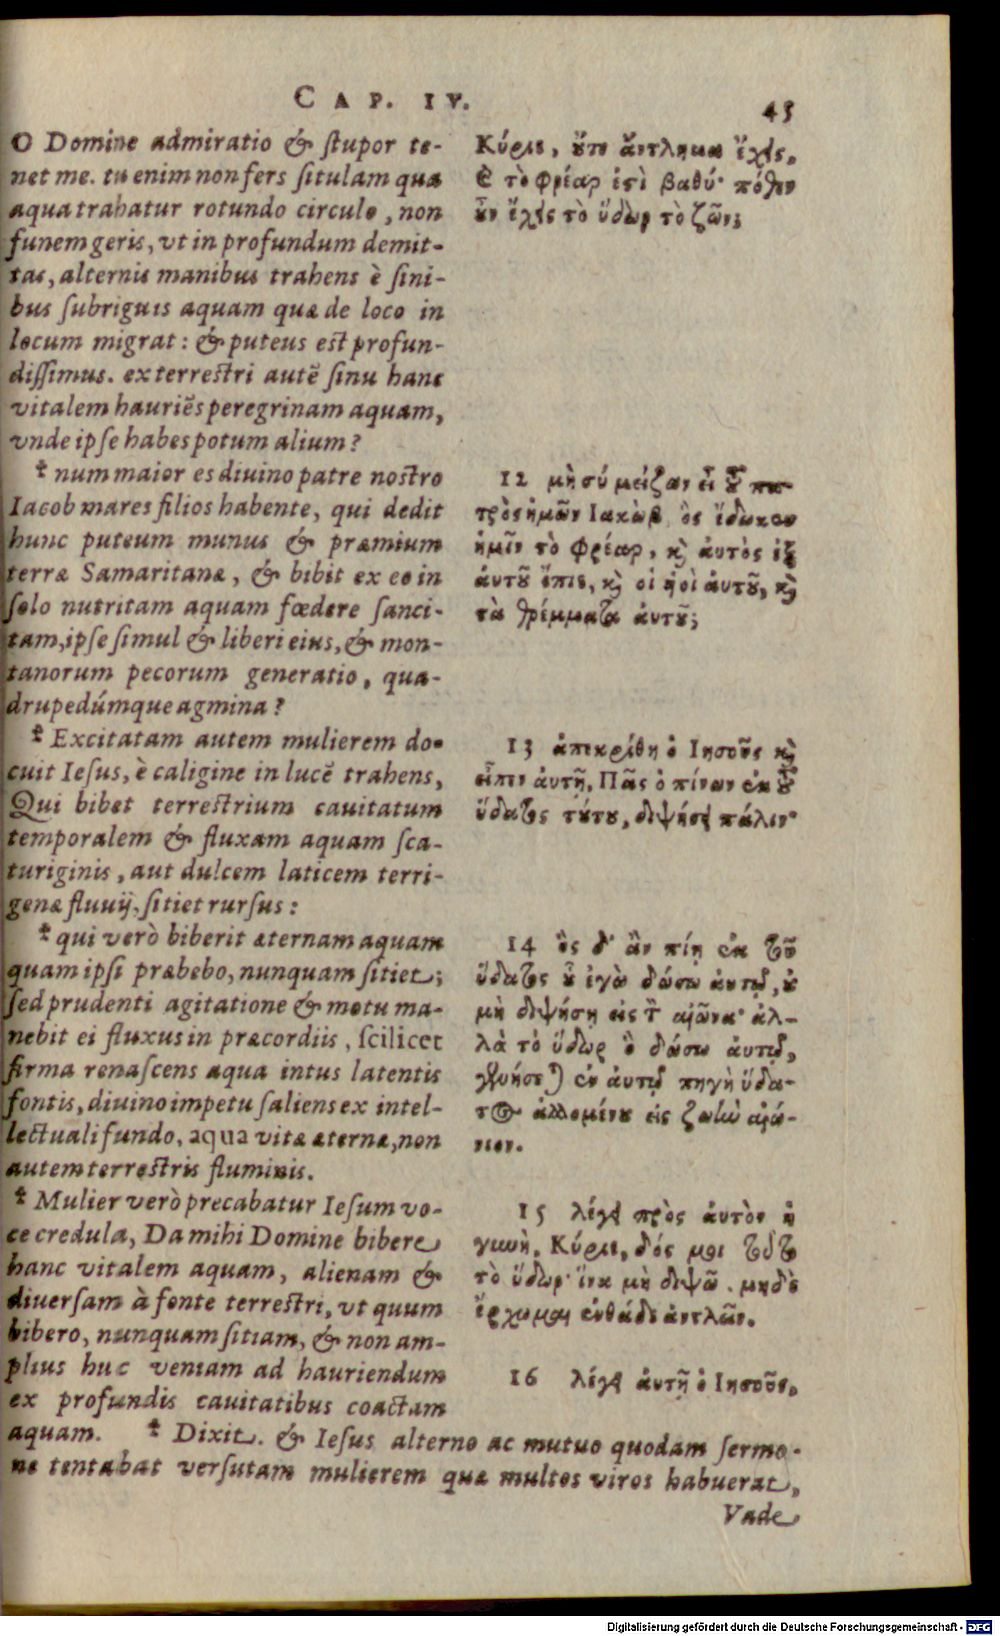 CAP. IV.
45
O Domine admiratio & ſtupor te-
net me. tu enim non fers ſitulam qua
aqua trahatur rotundo circulo, non
funem geris, vt in profundum demit-
tas, alternis manibus trahens è ſini-
bus ſubriguis aquam quæ de loco in
locum migrat: & puteus eſt profun-
diſſimus. ex terreſtri autē ſinu hanc
vitalem hauriēs peregrinam aquam,
vnde ipſe habes potum alium?
* num maior es diuino patre noſtro
Iacob mares filios habente, qui dedit
hunc puteum munus & præmium
terræ Samaritanæ, & bibit ex eo in
ſolo nutritam aquam fœdere ſanci-
tam, ipſe ſimul & liberi eius, & mon-
tanorum pecorum generatio, qua-
drupedúmque agmina?
* Excitatam autem mulierem do-
cuit Ieſus, è caligine in lucē trahens,
Qui bibet terreſtrium cauitatum
temporalem & fluxam aquam ſca-
turiginis, aut dulcem laticem terri-
genæ fluuij, ſitiet rurſus:
* qui verò biberit æternam aquam
quam ipſi præbebo, nunquam ſitiet;
ſed prudenti agitatione & motu ma-
nebit ei fluxus in præcordiis, ſcilicet
firma renaſcens aqua intus latentis
fontis, diuino impetu ſaliens ex intel-
lectuali fundo, aqua vitæ æternæ, non
autem terreſtris fluminis.
* Mulier verò precabatur Ieſum vo-
ce credula, Da mihi Domine bibere
hanc vitalem aquam, alienam &
diuerſam à fonte terreſtri, vt quum
bibero, nunquam ſitiam, & non am-
plius huc veniam ad hauriendum
ex profundis cauitatibus coactam
aquam. * Dixit. & Ieſus alterno ac mutuo quodam ſermo-
ne tentabat verſutam mulierem quæ multos viros habuerat,
Vade
Κύριε, οὔτε ἄντλημα ἔχεις,
καὶ τὸ φρέαρ ἐστὶ βαθύ· πόθεν
οὖν ἔχεις τὸ ὕδωρ τὸ ζῶν;
12 μὴ σύ μείζων εἶ τοῦ πα-
τρὸς ἡμῶν Ιακὼβ, ὃς ἔδωκεν
ἡμῖν τὸ φρέαρ, καὶ ἀυτὸς ἐξ
ἀυτοῦ ἔπιε, καὶ οἱ ἡοὶ ἀυτοῦ, καὶ
τὰ θρέμματα ἀυτοῦ;
13 ἀπεκρίθη ὁ Ιησοῦς καὶ
εἶπεν ἀυτῇ, Πᾶς ὁ πίνων ἐκ τοῦ
ὕδατος τούτου, διψήσει πάλιν·
14 ὃς δ᾽ ἂν πίῃ ἐκ τοῦ
ὕδατος οὗ ἐγὼ δώσω ἀυτῷ, οὐ
μὴ διψήσῃ εἰς τὸν αἰῶνα· ἀλ-
λὰ τὸ ὕδωρ ὃ δώσω ἀυτῷ,
γενήσεται ἐν ἀυτῷ πηγὴ ὕδα-
τος ἁλλομένου εἰς ζωὴν αἰώ-
νιον.
15 λέγει πρὸς ἀυτὸν ἡ
γυνὴ, Κύριε, δός μοι τοῦτο
τὸ ὕδωρ· ἵνα μὴ διψῶ. μηδὲ
ἔρχωμαι ἐνθάδε ἀντλῶν.
16 λέγει ἀυτῇ ὁ Ιησοῦς,
Digitalisierung gefördert durch die Deutsche Forschungsgemeinschaft - DFG